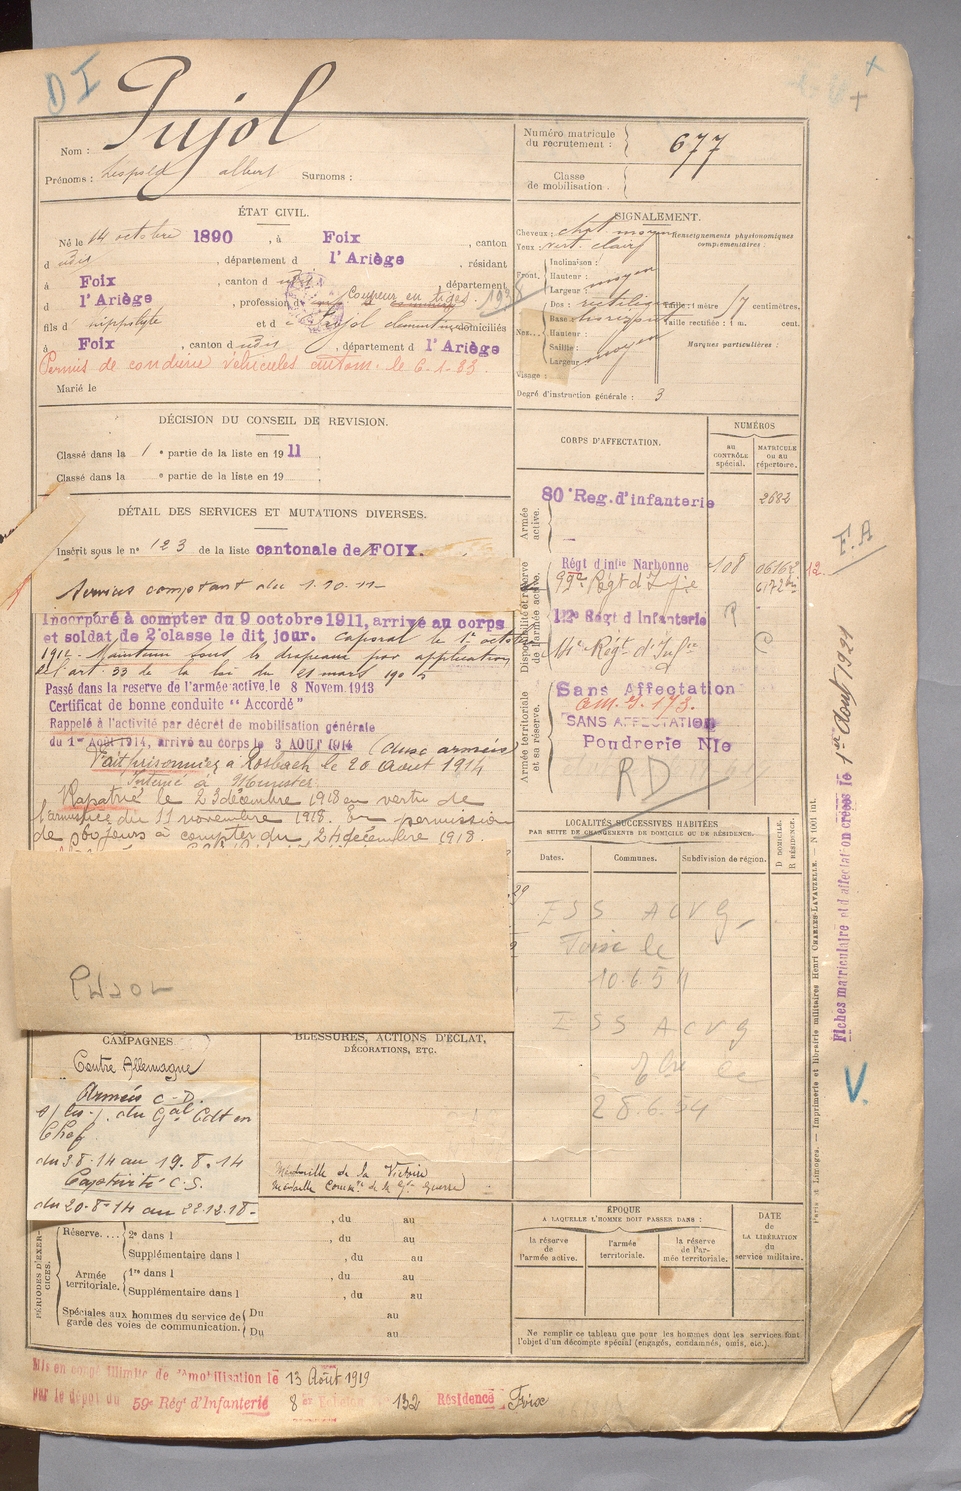 DI
Nom : Pujol
Prénoms : Léopold Albert Surnoms :
Numéro matricule du recrutement : 677
Classe de mobilisation :
ÉTAT CIVIL.
Né le 14 octobre 1890, à Foix, canton
d dudit, département d l'Ariège, résidant
à Foix, canton d dudit, département
d l'Ariège, profession d Coupeur en tiges
1938
fils d hippolyte et d Pujol clementine domiciliés
à Foix, canton d dudit, département d l'Ariège
Permis de conduire véhicules autom. le 6-1-83.
Marié le
SIGNALEMENT.
Cheveux : chat. moyen
Yeux : vert. clair
Renseignements physionomiques complémentaires :
Front.
Inclinaison :
Hauteur : moyen
Largeur :
Nez...
Dos : rectiligne
Base : horizont
Hauteur :
Saillie :
Largeur : moyen
Visage :
Taille : 1 mètre 17 centimètres.
Taille rectifiée : 1 m. cent.
Marques particulières :
Degré d'instruction générale : 3
DÉCISION DU CONSEIL DE REVISION.
Classé dans la 1 e partie de la liste en 1911.
Classé dans la e partie de la liste en 19 .
DÉTAIL DES SERVICES ET MUTATIONS DIVERSES.
Inscrit sous le n° 123 de la liste cantonale de FOIX.
Services comptant du 1.10.11
Incorporé à compter du 9 octobre 1911, arrivé au corps
et soldat de 2e classe le dit jour. Caporal le 1er octobre
1912. Maintenu sous les drapeaux par application
de l'art. 33 de la loi du 21 mars 1905
Passé dans la reserve de l'armée active, le 8 Novem. 1913
Certificat de bonne conduite "Accordé"
Rappelé à l'activité par décret de mobilisation générale
du 1er Août 1914, arrivé au corps le 3 AOUT 1914 (aux armées)
Fait prisonnier à Rosbach le 20 Aout 1914
Interné à Munster
Rapatrié le 23 décembre 1918 en vertu de
l'armistice du 11 novembre 1918. En permission
de 60 jours à compter du 24 décembre 1918.
PUJOL
CORPS D'AFFECTATION.
NUMÉROS
au CONTRÔLE spécial.
MATRICULE ou au répertoire.
Armée active.
80e Reg. d'infanterie 2682
Disponibilité et réserve de l'armée active.
Régt d'infie Narbonne 108 06162 12.
92e Régt d'Infie 6172 bis
112e Régt d Infanterie
14e Régt d'Infie
Armée territoriale et sa réserve.
Sans Affectation
SANS AFFECTATION
Poudrerie Nle
RD
F.A
Fiches matriculaire et d'affectation créées le 1er Aout 1921
V.
LOCALITÉS SUCCESSIVES HABITÉES
PAR SUITE DE CHANGEMENTS DE DOMICILE OU DE RÉSIDENCE.
Dates. Communes. Subdivision de région.
D DOMICILE. R RÉSIDENCE.
ISS ACVG
Foix le
10.6.54
ISS ACVG
le
28.6.54
CAMPAGNES
Contre Allemagne
Armées C-D.
du Gal Cdt en
Chef
du 3.8.14 au 19.8.14
Captivité C.S.
du 20-8-14 au 22.12.18-
BLESSURES, ACTIONS D'ÉCLAT,
DÉCORATIONS, ETC.
Médaille de la Victoire
Médaille Comm. de la Gde Guerre
PÉRIODES D'EXERCICES.
Réserve....
2e dans l , du au
Supplémentaire dans l , du au
Armée territoriale.
1re dans l , du au
Supplémentaire dans l , du au
Spéciales aux hommes du service de garde des voies de communication.
Du au
Du au
ÉPOQUE
A LAQUELLE L'HOMME DOIT PASSER DANS :
la réserve de l'armée active.
l'armée territoriale.
la réserve de l'armée territoriale.
DATE de LA LIBÉRATION du service militaire.
Ne remplir ce tableau que pour les hommes dont les services font
l'objet d'un décompte spécial (engagés, condamnés, omis, etc.).
Paris et Limoges. — Imprimerie et librairie militaires Henri CHARLES-LAVAUZELLE.
Mis en congé illimité de démobilisation le 13 Août 1919
par le dépot du 59e Rég' d'Infanterie 8e Echelon 132 Résidence Foix